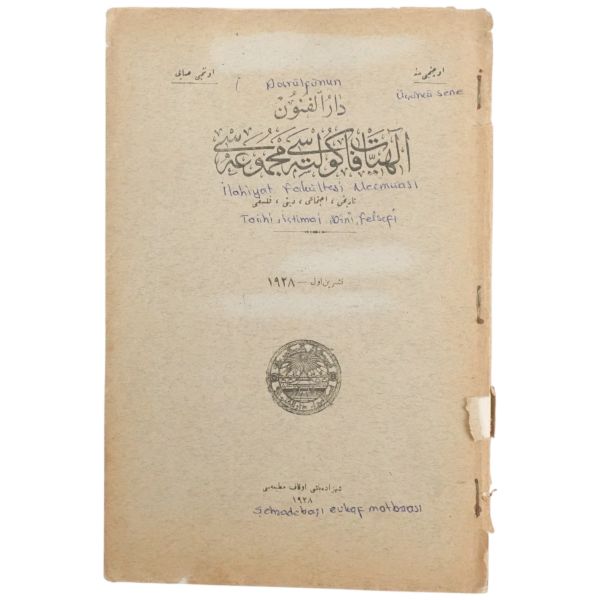 اوچنجی سنه
اوننجی صایی
Darülfünun
Üçüncü sene
دار الفنون
الهیات فاکولته سی مجموعه سی
İlahiyat Fakültesi Mecmuası
تاریخی ، اجتماعی ، دینی ، فلسفی
Tarihi, ictimai, Dini, felsefi
تشرین اول — ١٩٢٨
شهزاده باشی اوقاف مطبعه سی
١٩٢٨
Şehzadebaşı evkaf matbaası